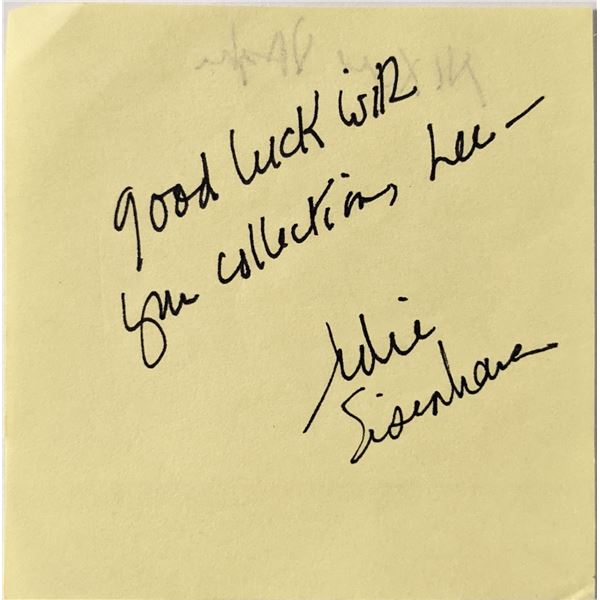 good luck with
your collections, Lee —
Julie
Eisenhower